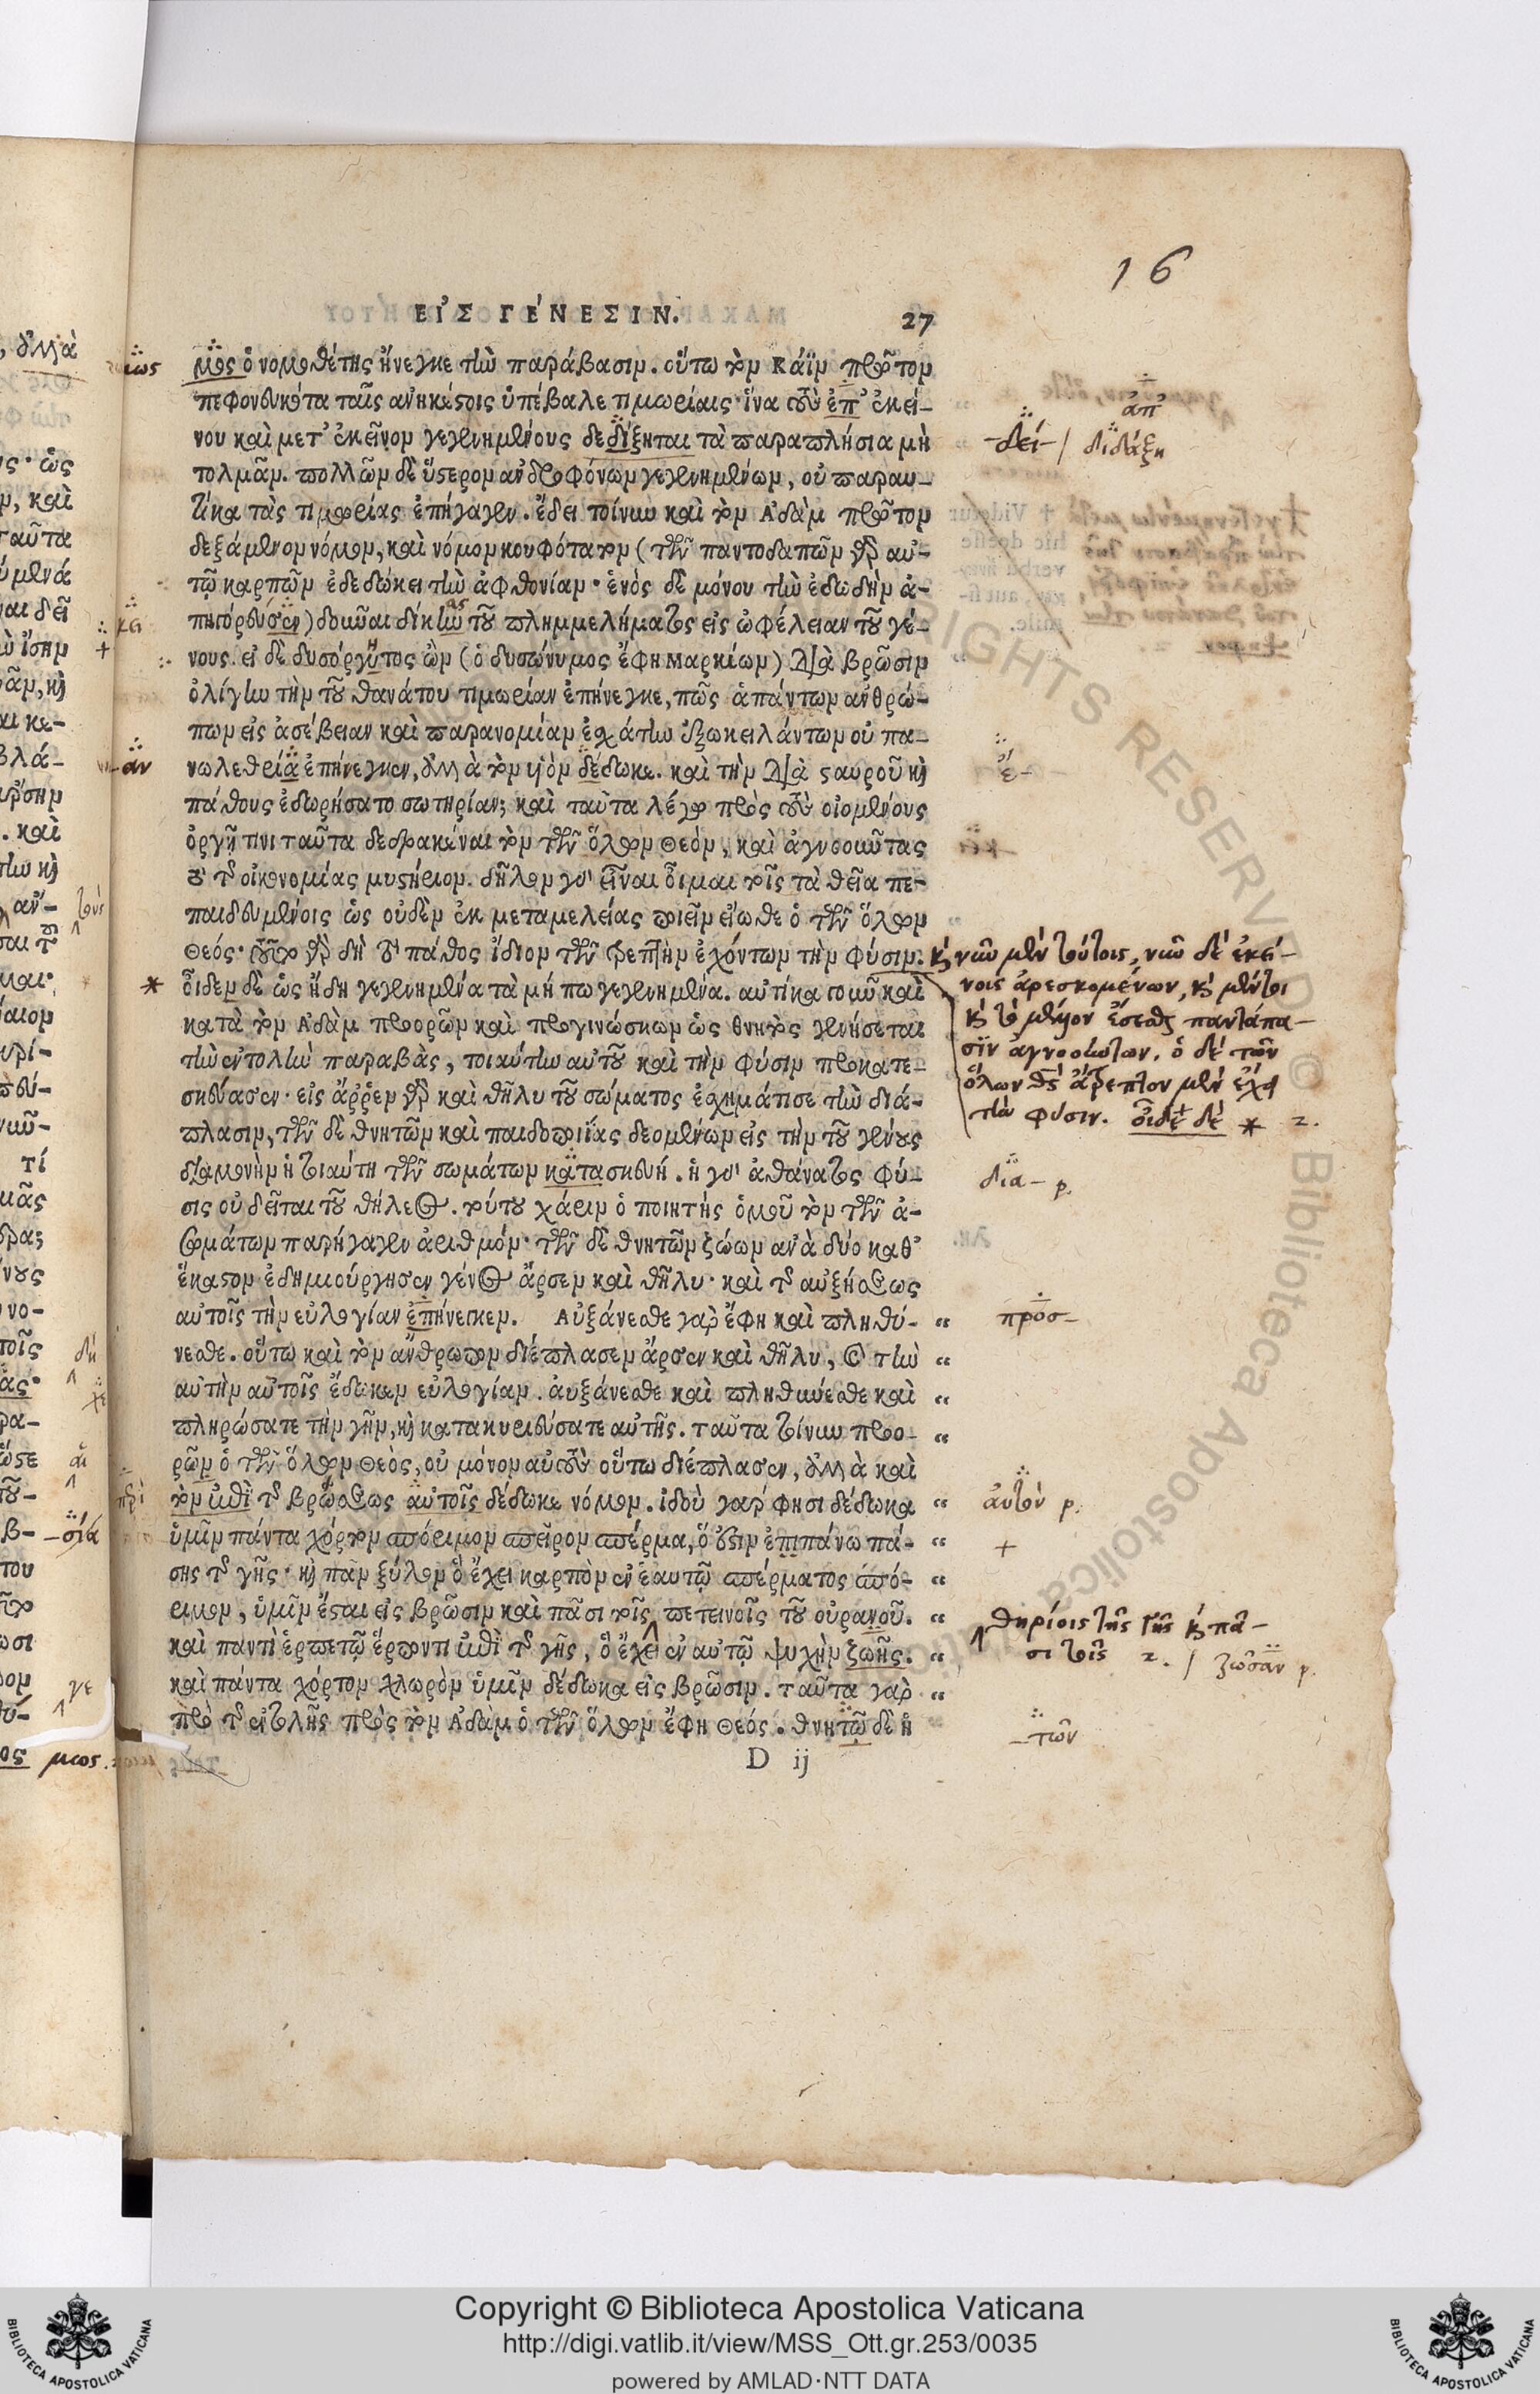 16
ΕΙΣ ΓΕΝΕΣΙΝ.
27
μος ὁ νομοθέτης ἤνεγκε τὴν παράβασιν. οὕτω τὸν Κάϊν πρῶτον
πεφονευκότα ταῖς ἀνηκέστοις ὑπέβαλε τιμωρίαις· ἵνα τοὺς ἐπ' ἐκεί-
νου καὶ μετ' ἐκεῖνον γεγενημένους δεδίξηται τὰ παραπλήσια μὴ
τολμᾶν. πολλῶν δὲ ὕστερον ἀνδροφόνων γεγενημένων, οὐ παραυ-
τίκα τὰς τιμωρίας ἐπήγαγεν. ἔδει τοίνυν καὶ τὸν Ἀδὰμ πρῶτον
δεξάμενον νόμον, καὶ νόμον κουφότατον (τῶν παντοδαπῶν γὰρ αὐ-
τῷ καρπῶν ἐδεδώκει τὴν ἀφθονίαν· ἑνὸς δὲ μόνου τὴν ἐδωδὴν ἀ-
πηγόρευσεν) δοῦναι δίκην τοῦ πλημμελήματος εἰς ὠφέλειαν τοῦ γέ-
νους. εἰ δὲ δυσόργητος ὢν (ὁ δυσώνυμος ἔφη Μαρκίων) διὰ βρῶσιν
ὀλίγην τὴν τοῦ θανάτου τιμωρίαν ἐπήνεγκε, πῶς ἁπάντων ἀνθρώ-
πων εἰς ἀσέβειαν καὶ παρανομίαν ἐσχάτην ἐξωκειλάντων οὐ πα-
νωλεθρία ἐπήνεγκεν, ἀλλὰ τὸν υἱὸν δέδωκε. καὶ τὴν διὰ σταυροῦ καὶ
πάθους ἐδωρήσατο σωτηρίαν; καὶ ταῦτα λέγω πρὸς τοὺς οἰομένους
ὀργῇ τινι ταῦτα δεδρακέναι τὸν τῶν ὅλων Θεὸν, καὶ ἀγνοοῦντας
τὸ τῆς οἰκονομίας μυστήριον. δῆλον γὰρ εἶναι οἶμαι τοῖς τὰ θεῖα πε-
παιδευμένοις ὡς οὐδὲν ἐκ μεταμελείας ποιεῖν εἴωθε ὁ τῶν ὅλων
Θεός· τοῦτο γὰρ δὴ τὸ πάθος ἴδιον τῶν τρεπτὴν ἐχόντων τὴν φύσιν.
οἶδεν δὲ ὡς ἤδη γεγενημένα τὰ μή πω γεγενημένα. αὐτίκα τοιγοῦν καὶ
κατὰ τὸν Ἀδὰμ προορῶν καὶ προγινώσκων ὡς θνητὸς γενήσεται
τὴν ἐντολὴν παραβὰς, τοιαύτην αὐτοῦ καὶ τὴν φύσιν προκατε-
σκεύασεν· εἰς ἄρρεν γὰρ καὶ θῆλυ τοῦ σώματος ἐσχημάτισε τὴν διά-
πλασιν, τῶν δὲ θνητῶν καὶ παιδοποιΐας δεομένων εἰς τὴν τοῦ γένους
διαμονὴν ἡ τοιαύτη τῶν σωμάτων κατασκευή. ἡ γὰρ ἀθάνατος φύ-
σις οὐ δεῖται τοῦ θήλεος. τούτου χάριν ὁ ποιητὴς ὁμοῦ τὸν τῶν ἀ-
σωμάτων παρήγαγεν ἀριθμόν· τῶν δὲ θνητῶν ζώων ἀνὰ δύο καθ'
ἕκαστον ἐδημιούργησεν γένος ἄρσεν καὶ θῆλυ· καὶ τῆς αὐξήσεως
αὐτοῖς τὴν εὐλογίαν ἐπήνεγκεν. Αὐξάνεσθε γὰρ ἔφη καὶ πληθύ-
νεσθε. οὕτω καὶ τὸν ἄνθρωπον διέπλασεν ἄρσεν καὶ θῆλυ, καὶ τὴν
αὐτὴν αὐτοῖς ἔδωκεν εὐλογίαν. αὐξάνεσθε καὶ πληθύνεσθε καὶ
πληρώσατε τὴν γῆν, καὶ κατακυριεύσατε αὐτῆς. ταῦτα τοίνυν προο-
ρῶν ὁ τῶν ὅλων Θεὸς, οὐ μόνον αὐτοὺς οὕτω διέπλασεν, ἀλλὰ καὶ
τὸν ἐπὶ τῆς βρώσεως αὐτοῖς δέδωκε νόμον. ἰδοὺ γάρ φησι δέδωκα
ὑμῖν πάντα χόρτον σπόριμον σπεῖρον σπέρμα, ὅ ἐστιν ἐπιπάνω πά-
σης τῆς γῆς· καὶ πᾶν ξύλον ὃ ἔχει καρπὸν ἐν ἑαυτῷ σπέρματος σπό-
ριμον, ὑμῖν ἔσται εἰς βρῶσιν καὶ πᾶσι τοῖς πετεινοῖς τοῦ οὐρανοῦ.
καὶ παντὶ ἑρπετῷ ἕρποντι ἐπὶ τῆς γῆς, ὃ ἔχει ἐν αὐτῷ ψυχὴν ζωῆς.
καὶ πάντα χόρτον χλωρὸν ὑμῖν δέδωκα εἰς βρῶσιν. ταῦτα γὰρ
πρὸ τῆς ἐντολῆς πρὸς τὸν Ἀδὰμ ὁ τῶν ὅλων ἔφη Θεός. θνητῷ δὲ ἡ
D ij
ἀπ'
-δεί- / διδάξῃ
-ἀν
ἐ-
καὶ νῦν μὲν τούτοις, νῦν δὲ ἐκεί-
νοις ἀρεσκομένων, καὶ μέντοι
καὶ τὸ μέλλον ἔσεσθαι παντάπα-
σιν ἀγνοούντων. ὁ δὲ τῶν
ὅλων θς ἄτρεπτον μὲν ἔχει
τὴν φύσιν. οἶδε δὲ * 2.
δια- p.
προσ-
αὐτὸν p.
+
θηρίοις τῆς γῆς καὶ πᾶ-
σι τοῖς 2. / ζῶσαν p.
-τῶν
Copyright © Biblioteca Apostolica Vaticana
http://digi.vatlib.it/view/MSS_Ott.gr.253/0035
powered by AMLAD·NTT DATA
BIBLIOTECA APOSTOLICA VATICANA
BIBLIOTECA APOSTOLICA VATICANA